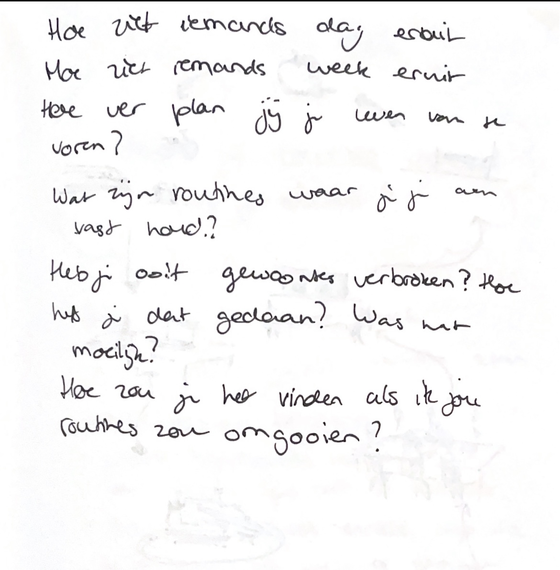 Hoe ziet iemands dag eruit
Hoe ziet iemands week eruit
Hoe ver plan jij je leven van te
voren?
Wat zijn routines waar jij je aan
vast houd?
Heb je ooit gewoontes verbroken? Hoe
heb je dat gedaan? Was het
moeilijk?
Hoe zou je het vinden als ik jou
routines zou omgooien?